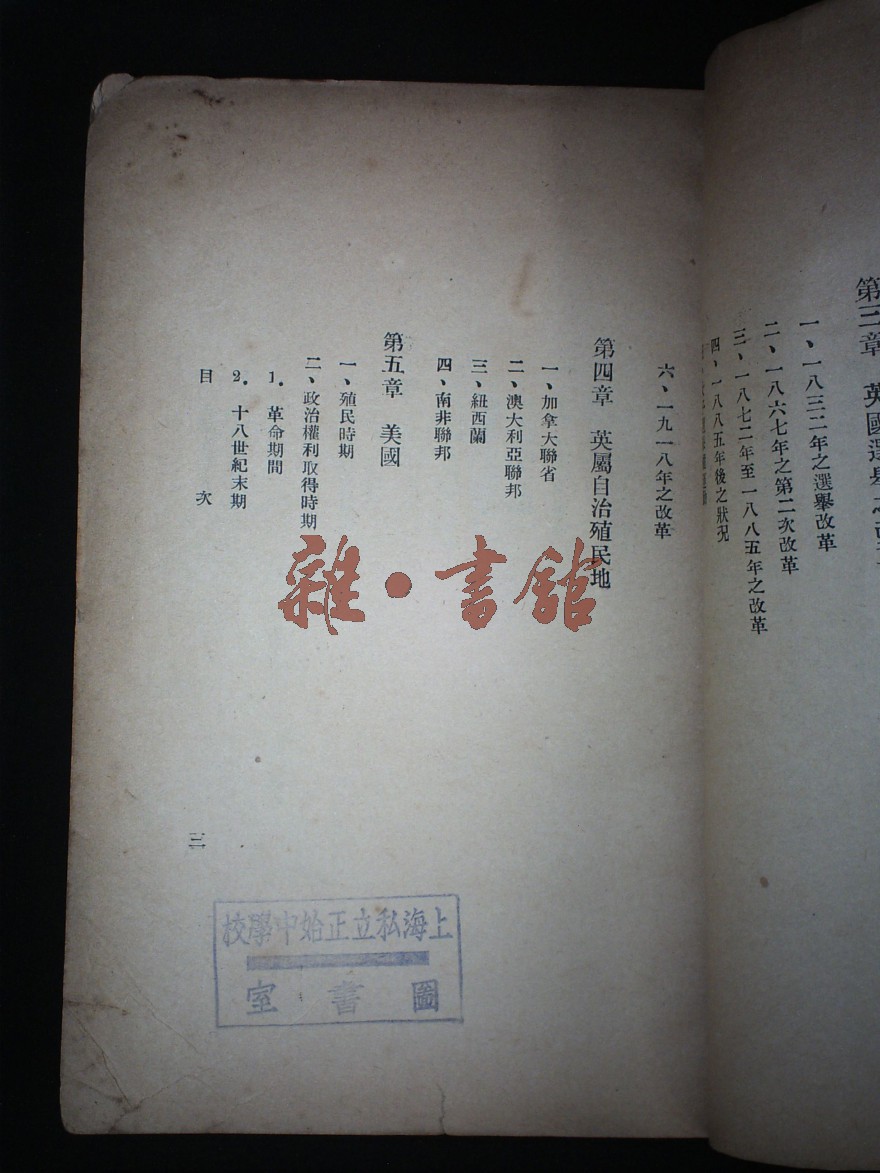 第三章　英國選舉之
一、一八三二年之選舉改革
二、一八六七年之第二次改革
三、一八七二年至一八八五年之改革
四、一八八五年後之狀況
六、一九一八年之改革
第四章　英屬自治殖民地
一、加拿大聯省
二、澳大利亞聯邦
三、紐西蘭
四、南非聯邦
第五章　美國
一、殖民時期
二、政治權利取得時期
1．革命期間
2．十八世紀末期
目　次
三
雜·書館
上海私立正始中學校
圖書室